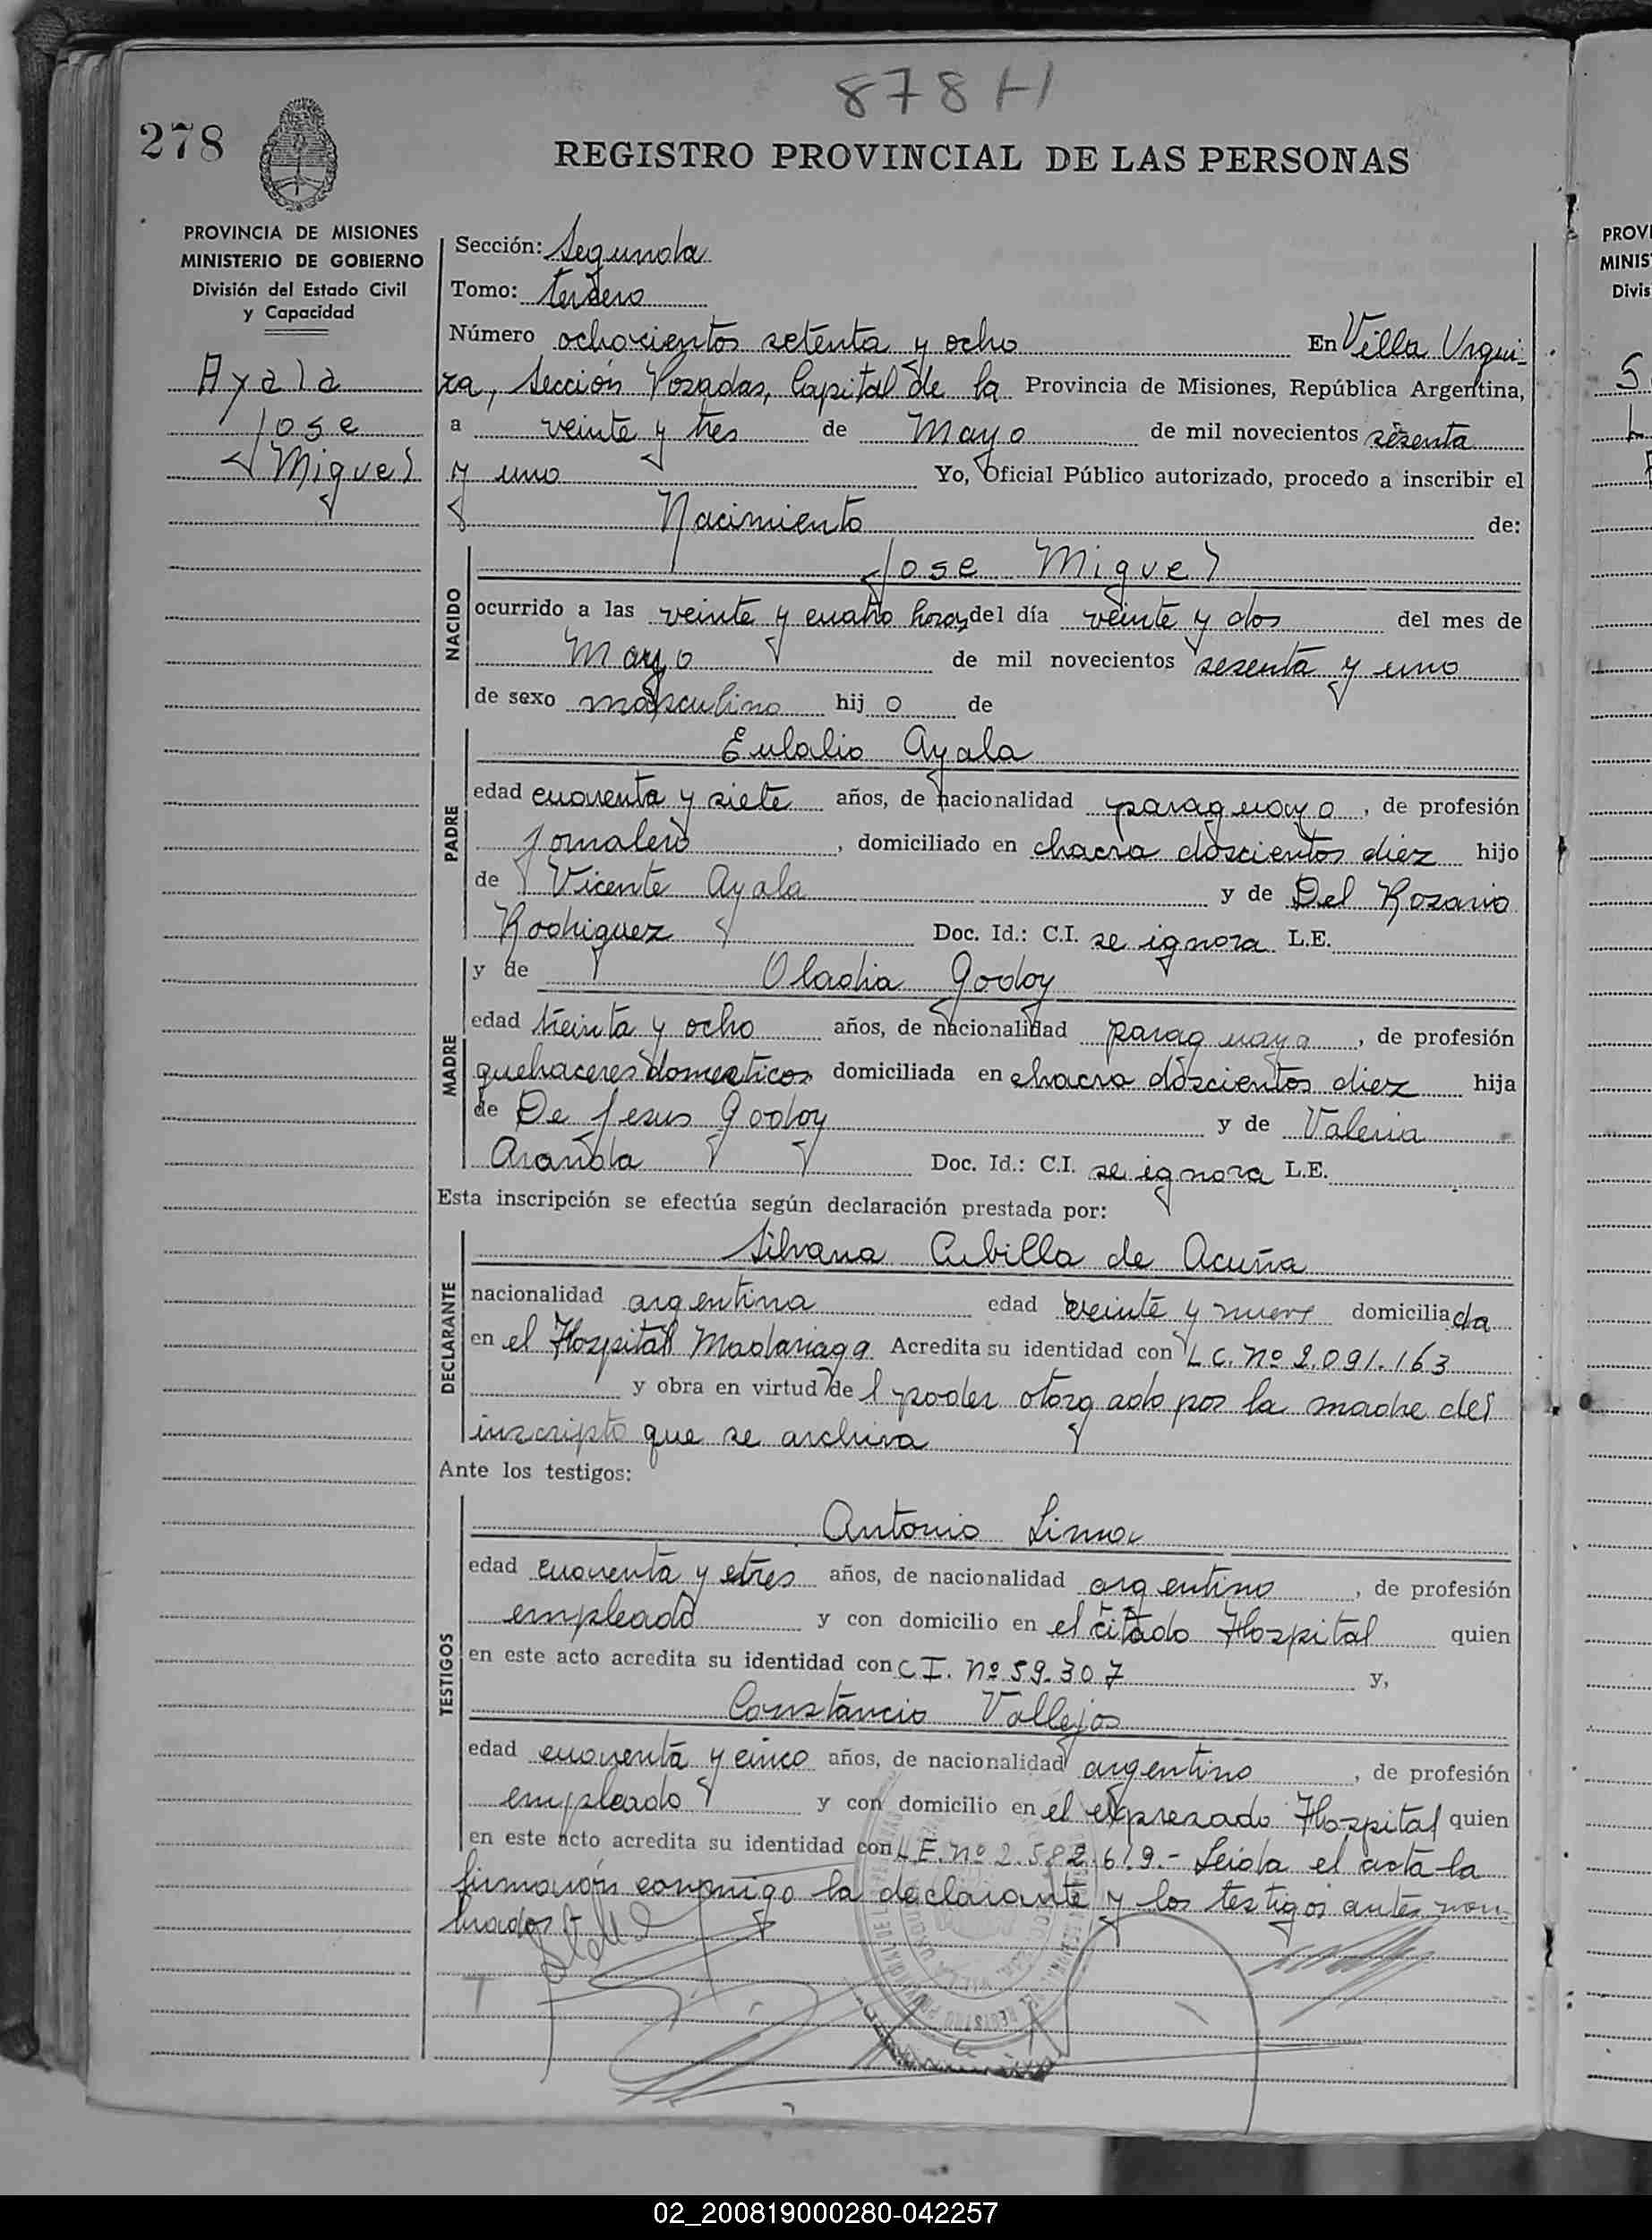 878 H
278
REGISTRO PROVINCIAL DE LAS PERSONAS
PROVINCIA DE MISIONES
MINISTERIO DE GOBIERNO
División del Estado Civil
y Capacidad
Ayala
Jose
Miguel
Sección: Segunda
Tomo: tercero
Número ochocientos setenta y ocho En Villa Urqui-
za, Sección Posadas, Capital de la Provincia de Misiones, República Argentina,
a veinte y tres de Mayo de mil novecientos sesenta
y uno Yo, Oficial Público autorizado, procedo a inscribir el
Nacimiento de:
NACIDO
Jose Miguel
ocurrido a las veinte y cuatro horas del día veinte y dos del mes de
Mayo de mil novecientos sesenta y uno
de sexo masculino hij o de
PADRE
Eulalio Ayala
edad cuarenta y siete años, de nacionalidad paraguayo, de profesión
Jornalero, domiciliado en chacra doscientos diez hijo
de Vicente Ayala y de Del Rosario
Rodriguez Doc. Id.: C.I. se ignora L.E.
MADRE
y de Oladia Godoy
edad treinta y ocho años, de nacionalidad paraguaya, de profesión
quehaceres domesticos domiciliada en chacra doscientos diez hija
de De Jesus Godoy y de Valeria
Aranda Doc. Id.: C.I. se ignora L.E.
Esta inscripción se efectúa según declaración prestada por:
DECLARANTE
Silvana Cubilla de Acuña
nacionalidad argentina edad veinte y nueve domiciliada
en el Hospital Madariaga Acredita su identidad con L.C. Nº 2.091.163
y obra en virtud de l poder otorgado por la madre del
inscripto que se archiva
Ante los testigos:
TESTIGOS
Antonio
edad cuarenta y tres años, de nacionalidad argentino, de profesión
empleado y con domicilio en el citado Hospital quien
en este acto acredita su identidad con C I. Nº 59.307 y,
Constancio Vallejos
edad cuarenta y cinco años, de nacionalidad argentino, de profesión
empleado y con domicilio en el expresado Hospital quien
en este acto acredita su identidad con L E. Nº 2.582.619.- Leida el acta la
firmaron conmigo la declarante y los testigos antes nom-
brados.-
PROVI
MINIS
Divis
02_200819000280-042257